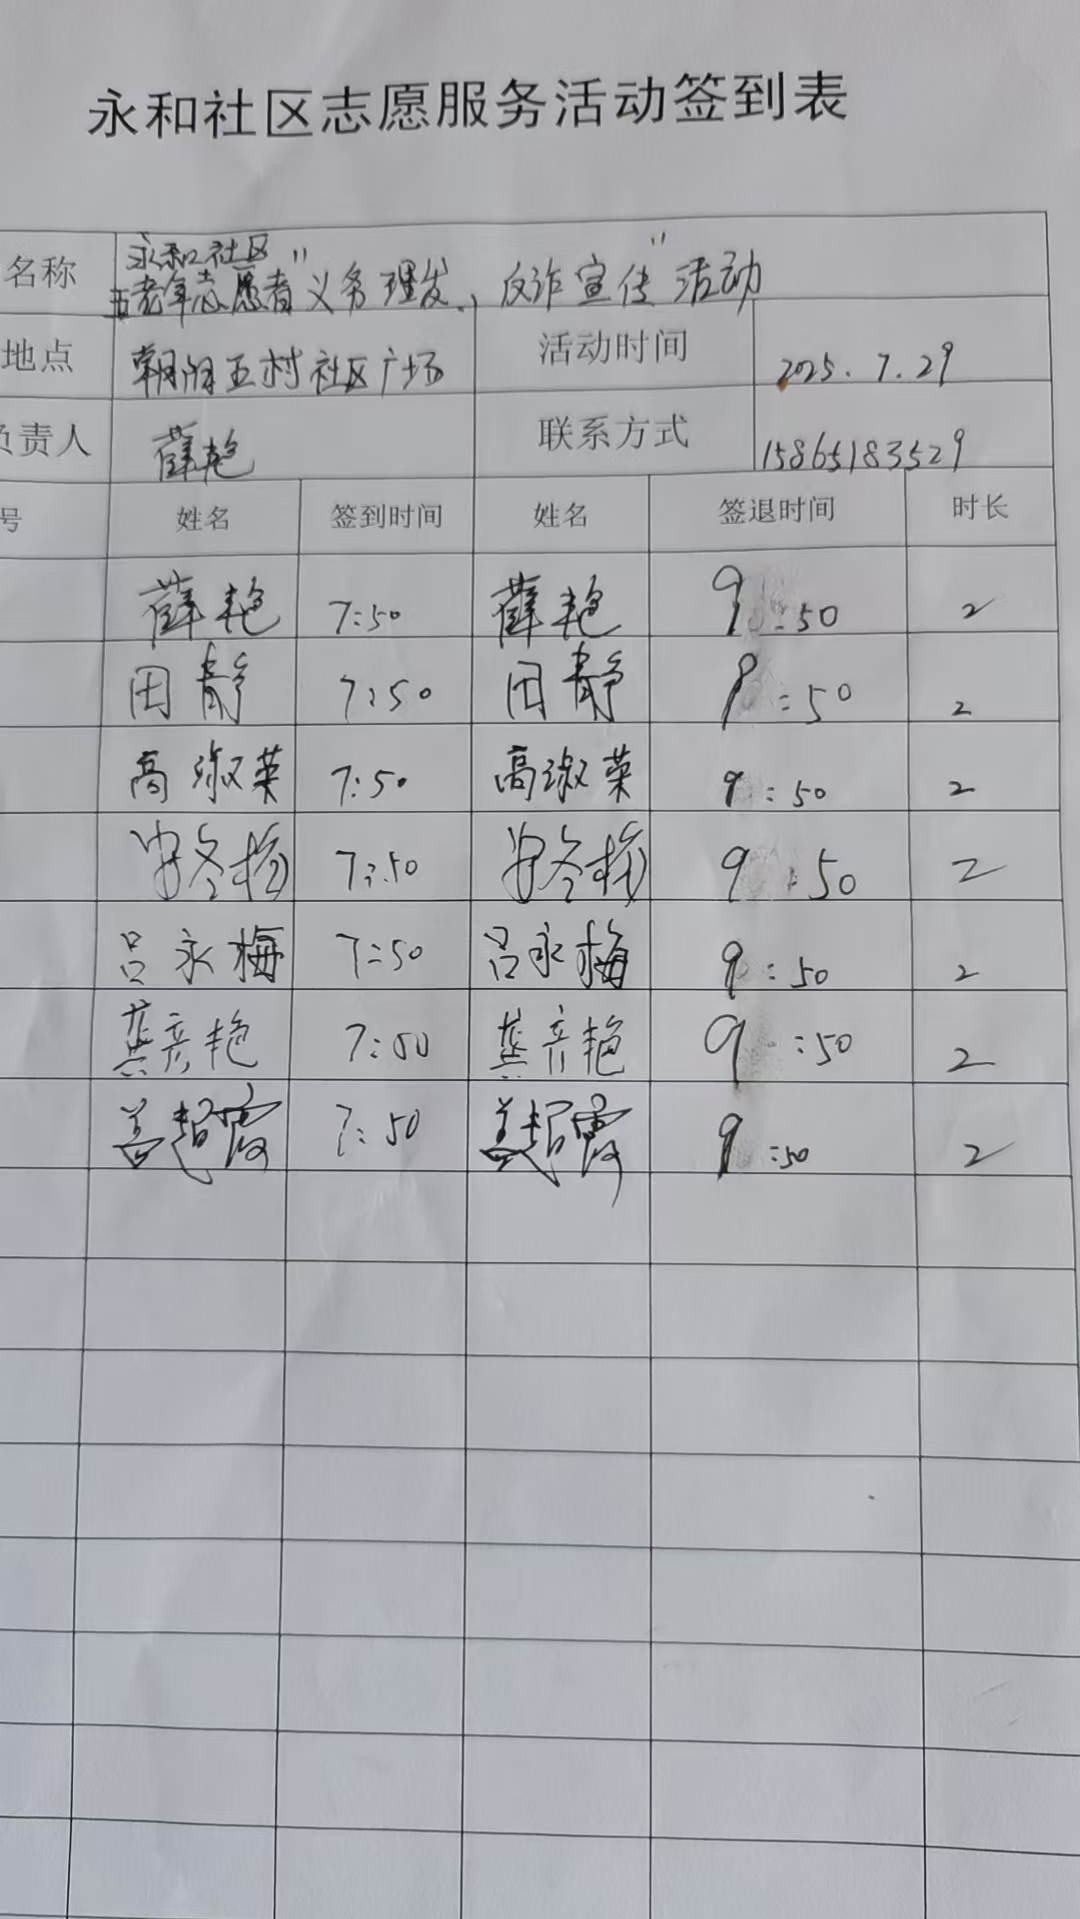 永和社区志愿服务活动签到表
名称 永和社区
五老年志愿者"义务理发、反诈宣传"活动
地点 朝阳五村社区广场 活动时间 2025.7.29
负责人 薛艳 联系方式 15865183529
号 姓名 签到时间 姓名 签退时间 时长
薛艳 7:50 薛艳 9:50 2
田静 7:50 田静 9:50 2
高淑荣 7:50 高淑荣 9:50 2
安冬梅 7:50 安冬梅 9:50 2
吕永梅 7:50 吕永梅 9:50 2
龚彦艳 7:50 龚彦艳 9:50 2
姜超霞 7:50 姜超霞 9:50 2